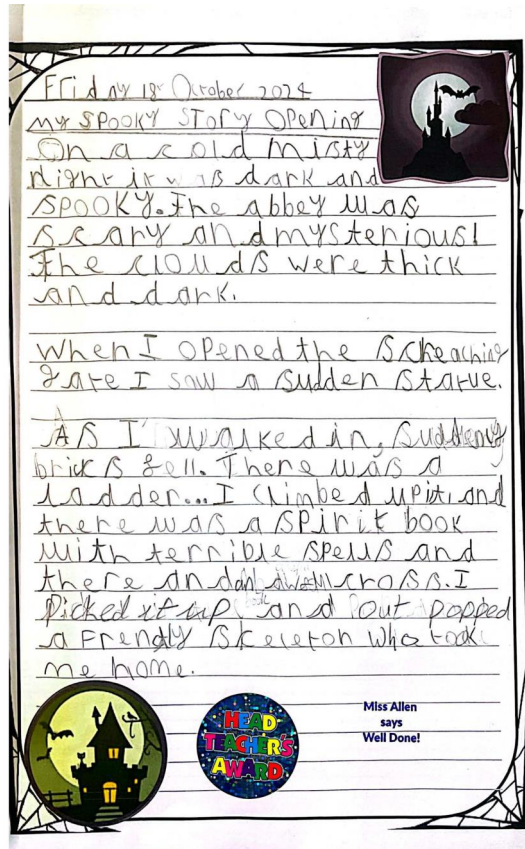 Friday 18th October 2024
My Spooky Story Opening
On a cold misty
night it was dark and
spooky. The abbey was
scary and mysterious!
The clouds were thick
and dark.
When I opened the screaching
gate I saw a sudden statue.
As I walked in, suddenly
bricks fell. There was a
ladder... I climbed up it and
there was a spirit book
with terrible spells and
there and an awful cross. I
picked it up, and out popped
a frendly skeleton who took
me home.
HEAD
TEACHER'S
AWARD
Miss Allen
says
Well Done!